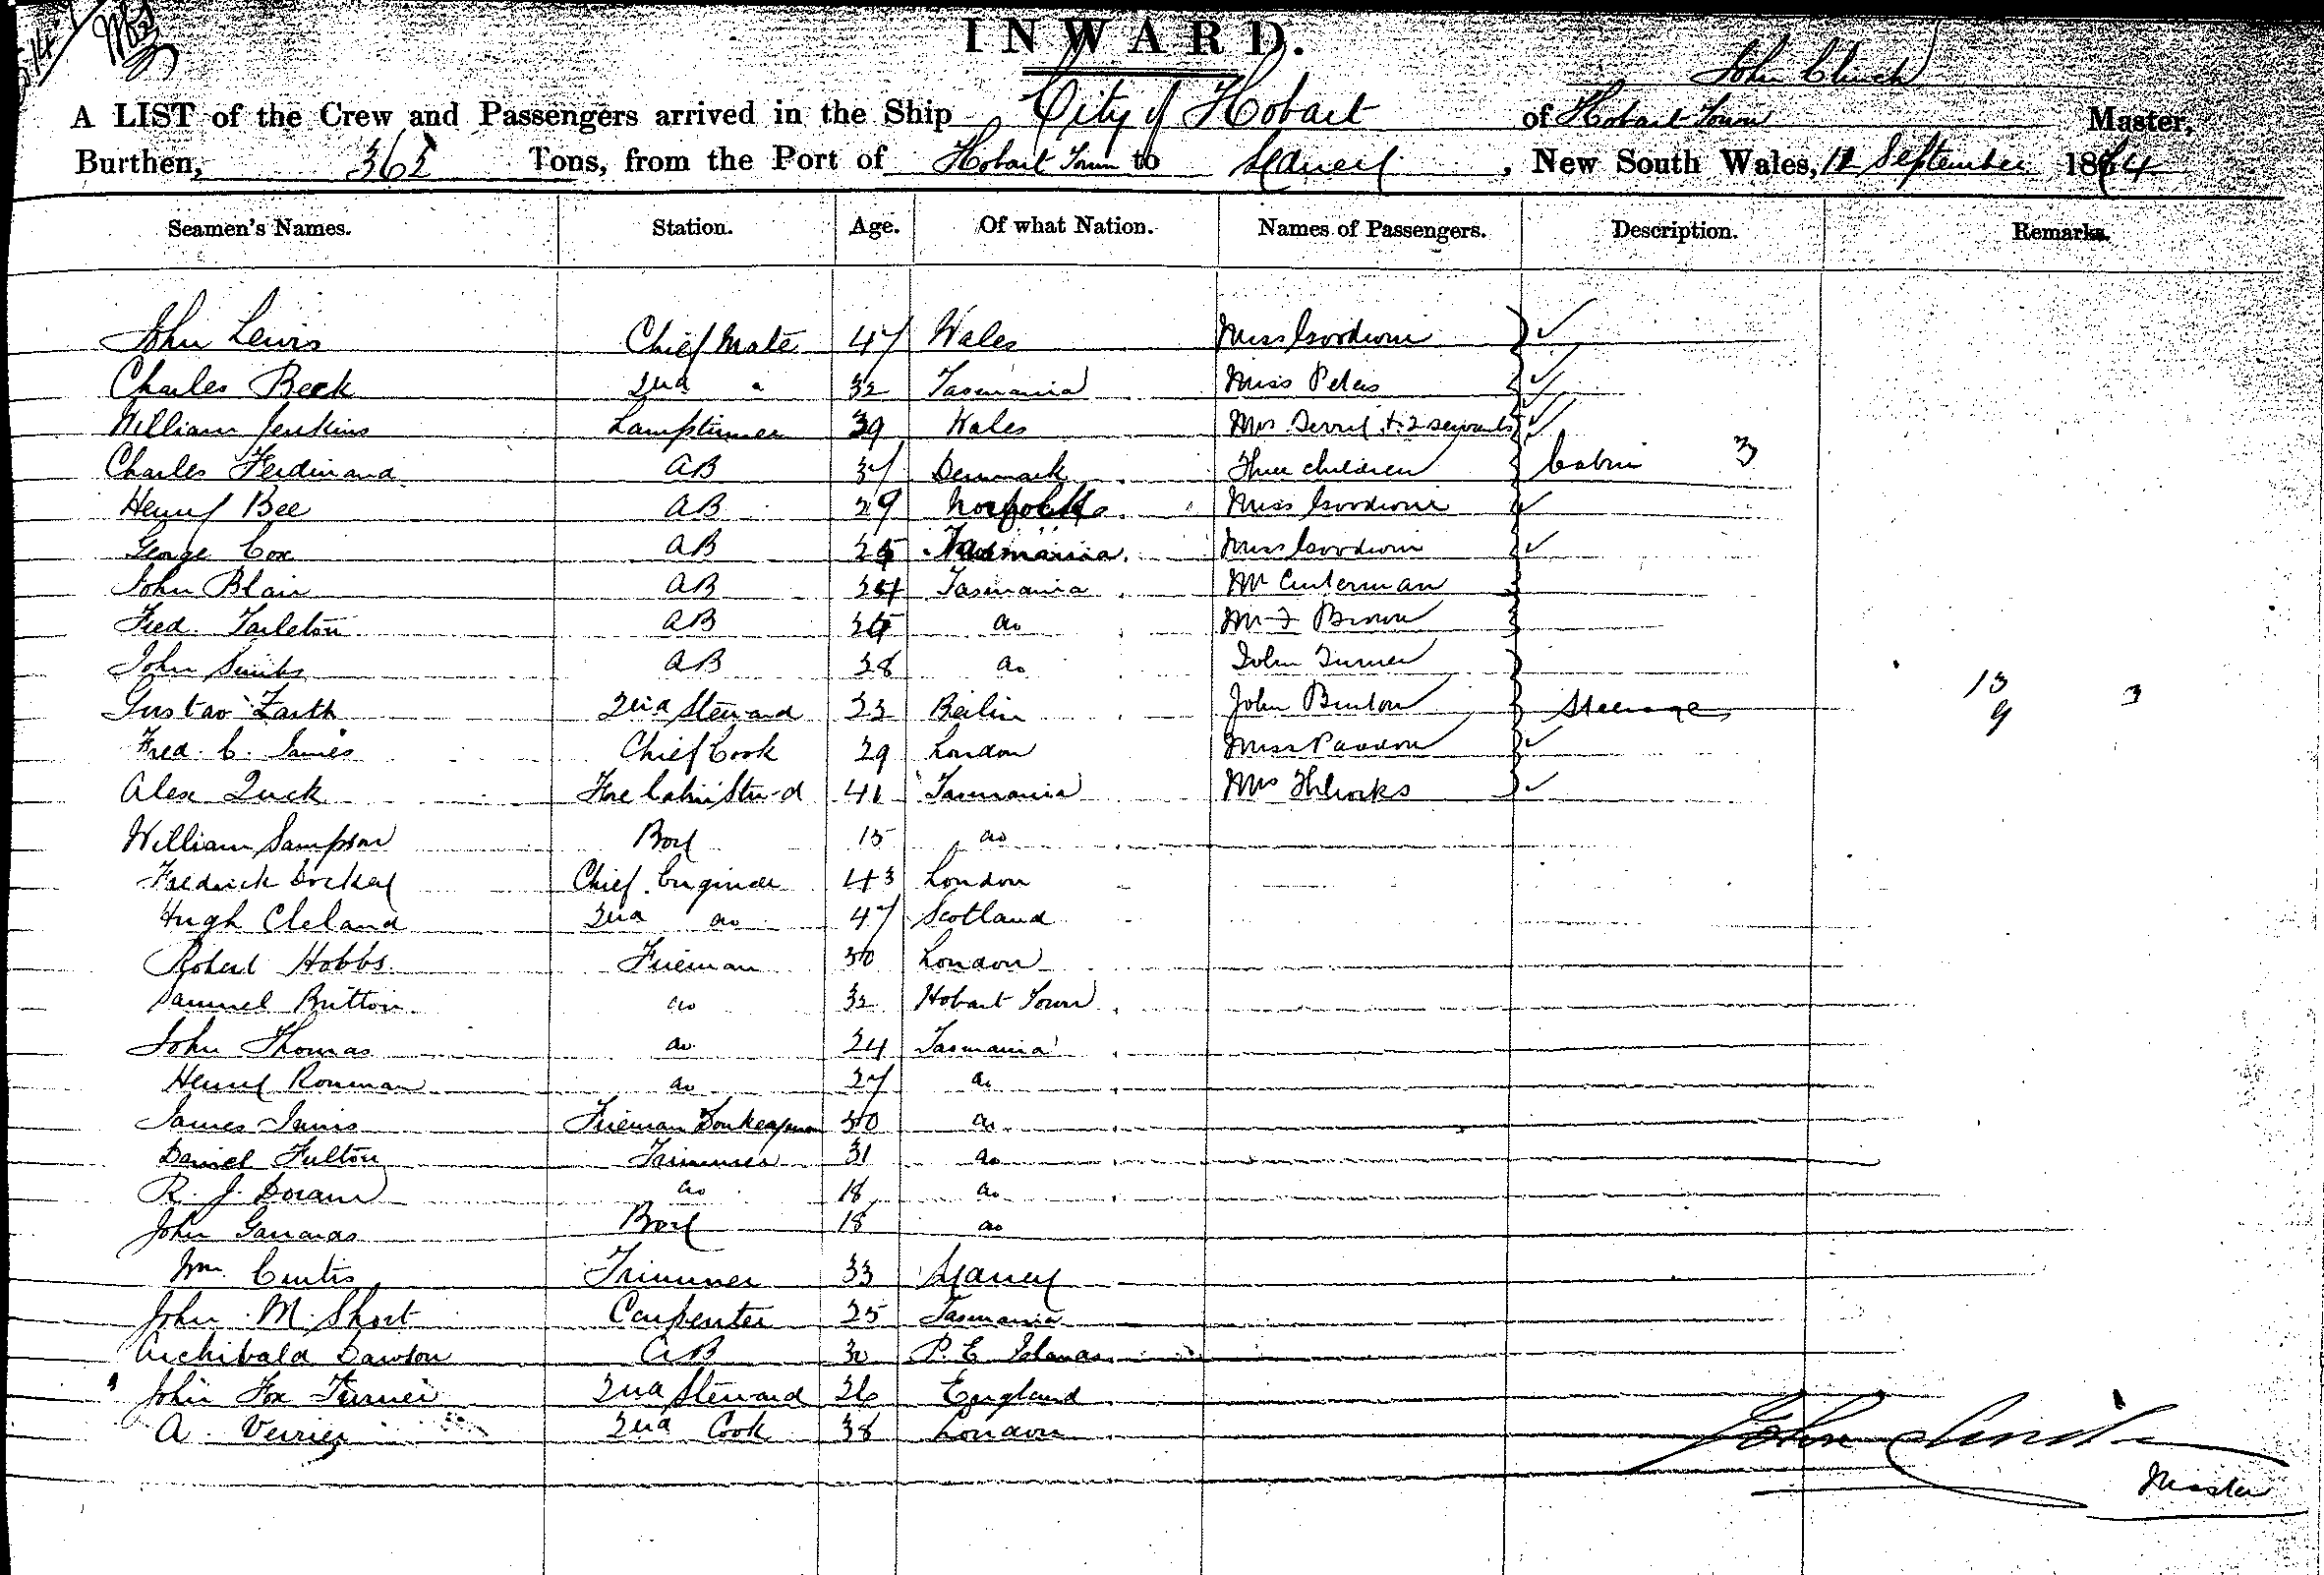 INWARD.
John Clinch
A LIST of the Crew and Passengers arrived in the Ship City of Hobart of Hobart Town Master,
Burthen, 363 Tons, from the Port of Hobart Town to Sydney, New South Wales, 12 September 1874
Seamen's Names. Station. Age. Of what Nation. Names of Passengers. Description. Remarks.
John Lewis Chief Mate 47 Wales Miss Goodwin
Charles Beck 2nd " 32 Tasmania Miss Peters
William Jenkins Lamptrimmer 39 Wales Mrs + 2 servants
Charles Ferdinand AB 37 Denmark Three children Cabin 3
Henry Bee AB 29 Miss Goodwin
George Cox AB Tasmania Miss Goodwin
John Blair AB 24 Tasmania Mr
Fred. Tarleton AB do Mr F Brown
John Smith AB 28 do John Turner
Gustav Zarth 2nd Steward 23 Berlin John Burton Steerage 13 9 3
Fred. C. James Chief Cook 29 London Miss
Alex Quck Fore Cabin Stew-d 41 Tasmania Mrs
William Sampson Boy 15 do
Fredrick Chief Engineer 43 London
Hugh Cleland 2nd do 47 Scotland
Robert Hobbs Fireman 30 London
Samuel Britton do 32 Hobart Town
John Thomas do 24 Tasmania
Henry Ronman do 27 do
James Innis Fireman Donkeyman 30 do
Daniel Fulton Trimmer 31 do
R. J. Doran do 18 do
John Boy 18 do
Wm. Curtis Trimmer 33 Sydney
John M. Short Carpenter 25 Tasmania
Archibald Dawson AB 30 P. E. Island
John Fox Turner 2nd Steward 26 England
A. Verrier 2nd Cook 38 London
John Clinch
Master